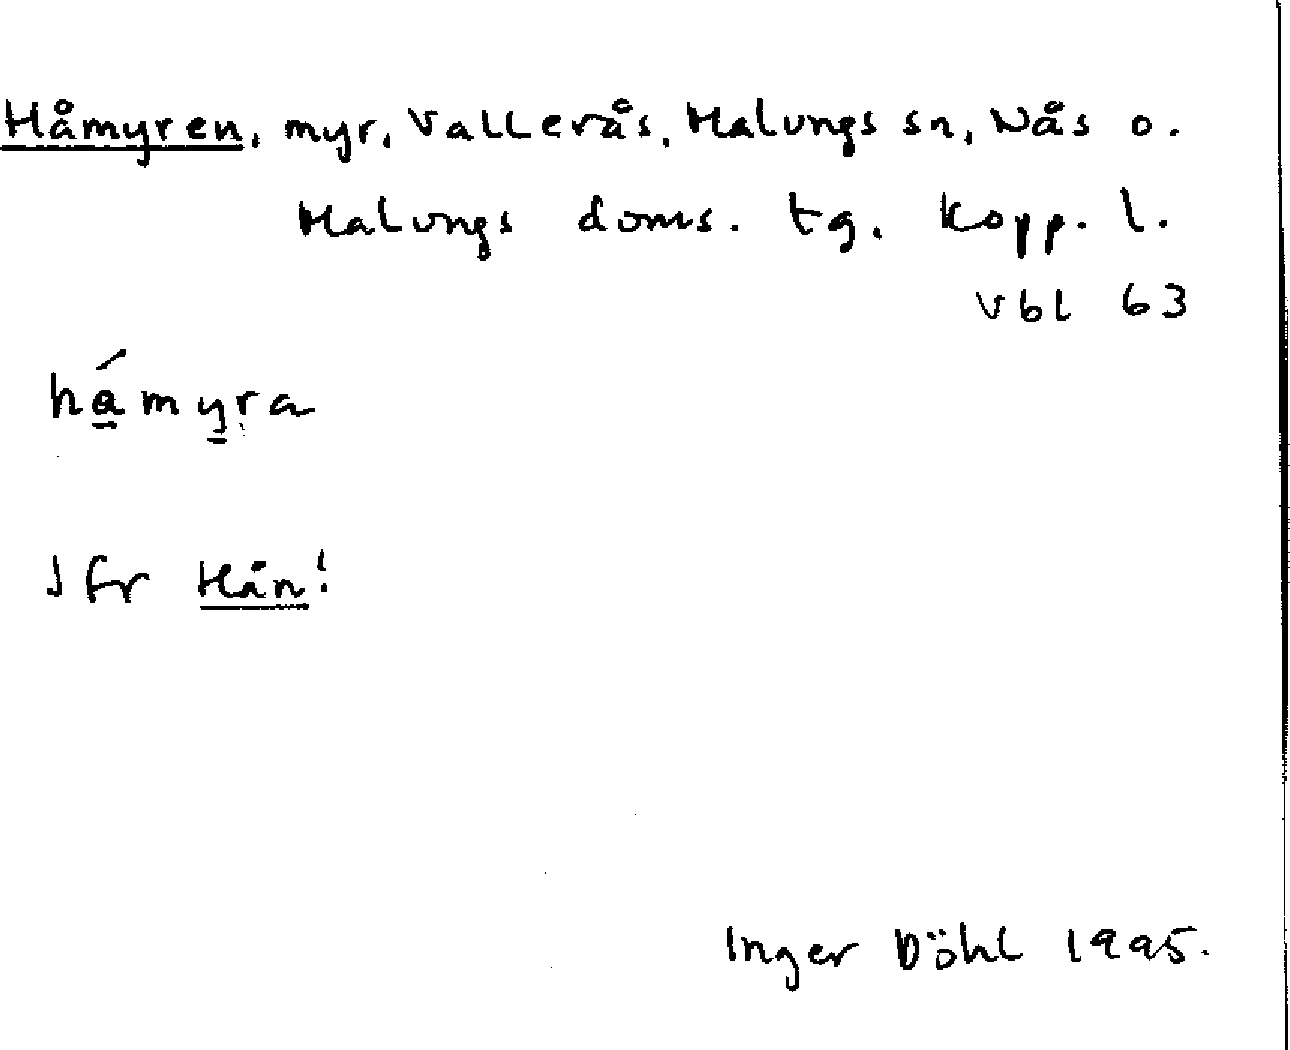 Håmyren, myr, Vallerås, Malungs sn, Nås o.
Malungs doms. tg. Kopp. l.
Vbl 63
há̱my̱ṛa
Jfr Hån!
Inger Döhl 1995.